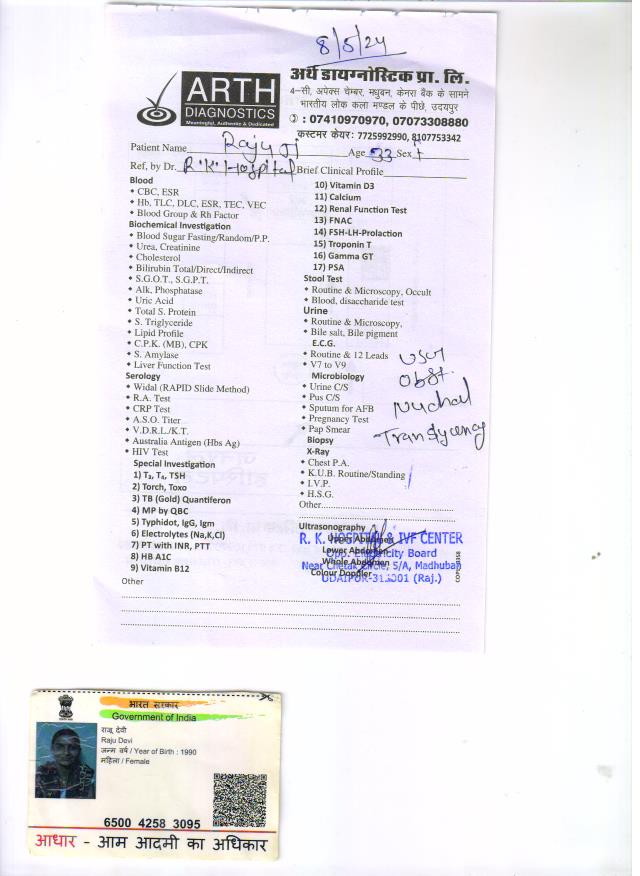 8/5/24
ARTH
DIAGNOSTICS
Meaningful, Authentic & Dedicated
अर्थ डायग्नोस्टिक प्रा. लि.
4–सी, अपेक्स चेम्बर, मधुबन, केनरा बैंक के सामने
भारतीय लोक कला मण्डल के पीछे, उदयपुर
: 07410970970, 07073308880
कस्टमर केयर: 7725992990, 8107753342
Patient Name Raju Ji Age 33 Sex F
Ref, by Dr. R.K. Hospital Brief Clinical Profile
Blood
CBC, ESR
Hb, TLC, DLC, ESR, TEC, VEC
Blood Group & Rh Factor
Biochemical Investigation
Blood Sugar Fasting/Random/P.P.
Urea, Creatinine
Cholesterol
Bilirubin Total/Direct/Indirect
S.G.O.T., S.G.P.T.
Alk, Phosphatase
Uric Acid
Total S. Protein
S. Triglyceride
Lipid Profile
C.P.K. (MB), CPK
S. Amylase
Liver Function Test
Serology
Widal (RAPID Slide Method)
R.A. Test
CRP Test
A.S.O. Titer
V.D.R.L./K.T.
Australia Antigen (Hbs Ag)
HIV Test
Special Investigation
1) T₃, T₄, TSH
2) Torch, Toxo
3) TB (Gold) Quantiferon
4) MP by QBC
5) Typhidot, IgG, Igm
6) Electrolytes (Na,K,Cl)
7) PT with INR, PTT
8) HB A1C
9) Vitamin B12
Other
10) Vitamin D3
11) Calcium
12) Renal Function Test
13) FNAC
14) FSH-LH-Prolaction
15) Troponin T
16) Gamma GT
17) PSA
Stool Test
Routine & Microscopy, Occult
Blood, disaccharide test
Urine
Routine & Microscopy,
Bile salt, Bile pigment
E.C.G.
Routine & 12 Leads
V7 to V9
Microbiology
Urine C/S
Pus C/S
Sputum for AFB
Pregnancy Test
Pap Smear
Biopsy
X-Ray
Chest P.A.
K.U.B. Routine/Standing
I.V.P.
H.S.G.
Other
USG
Obst.
Nuchal
Ultrasonography
Upper Abdomen
Lower Abdomen
Whole Abdomen
Colour Doppler
R. K. HOSPITAL & IVF CENTER
Opp. Electricity Board
Near Chetak Circle, 5/A, Madhuban
UDAIPUR-313001 (Raj.)
भारत सरकार
Government of India
राजू देवी
Raju Devi
जन्म वर्ष / Year of Birth : 1990
महिला / Female
6500 4258 3095
आधार - आम आदमी का अधिकार